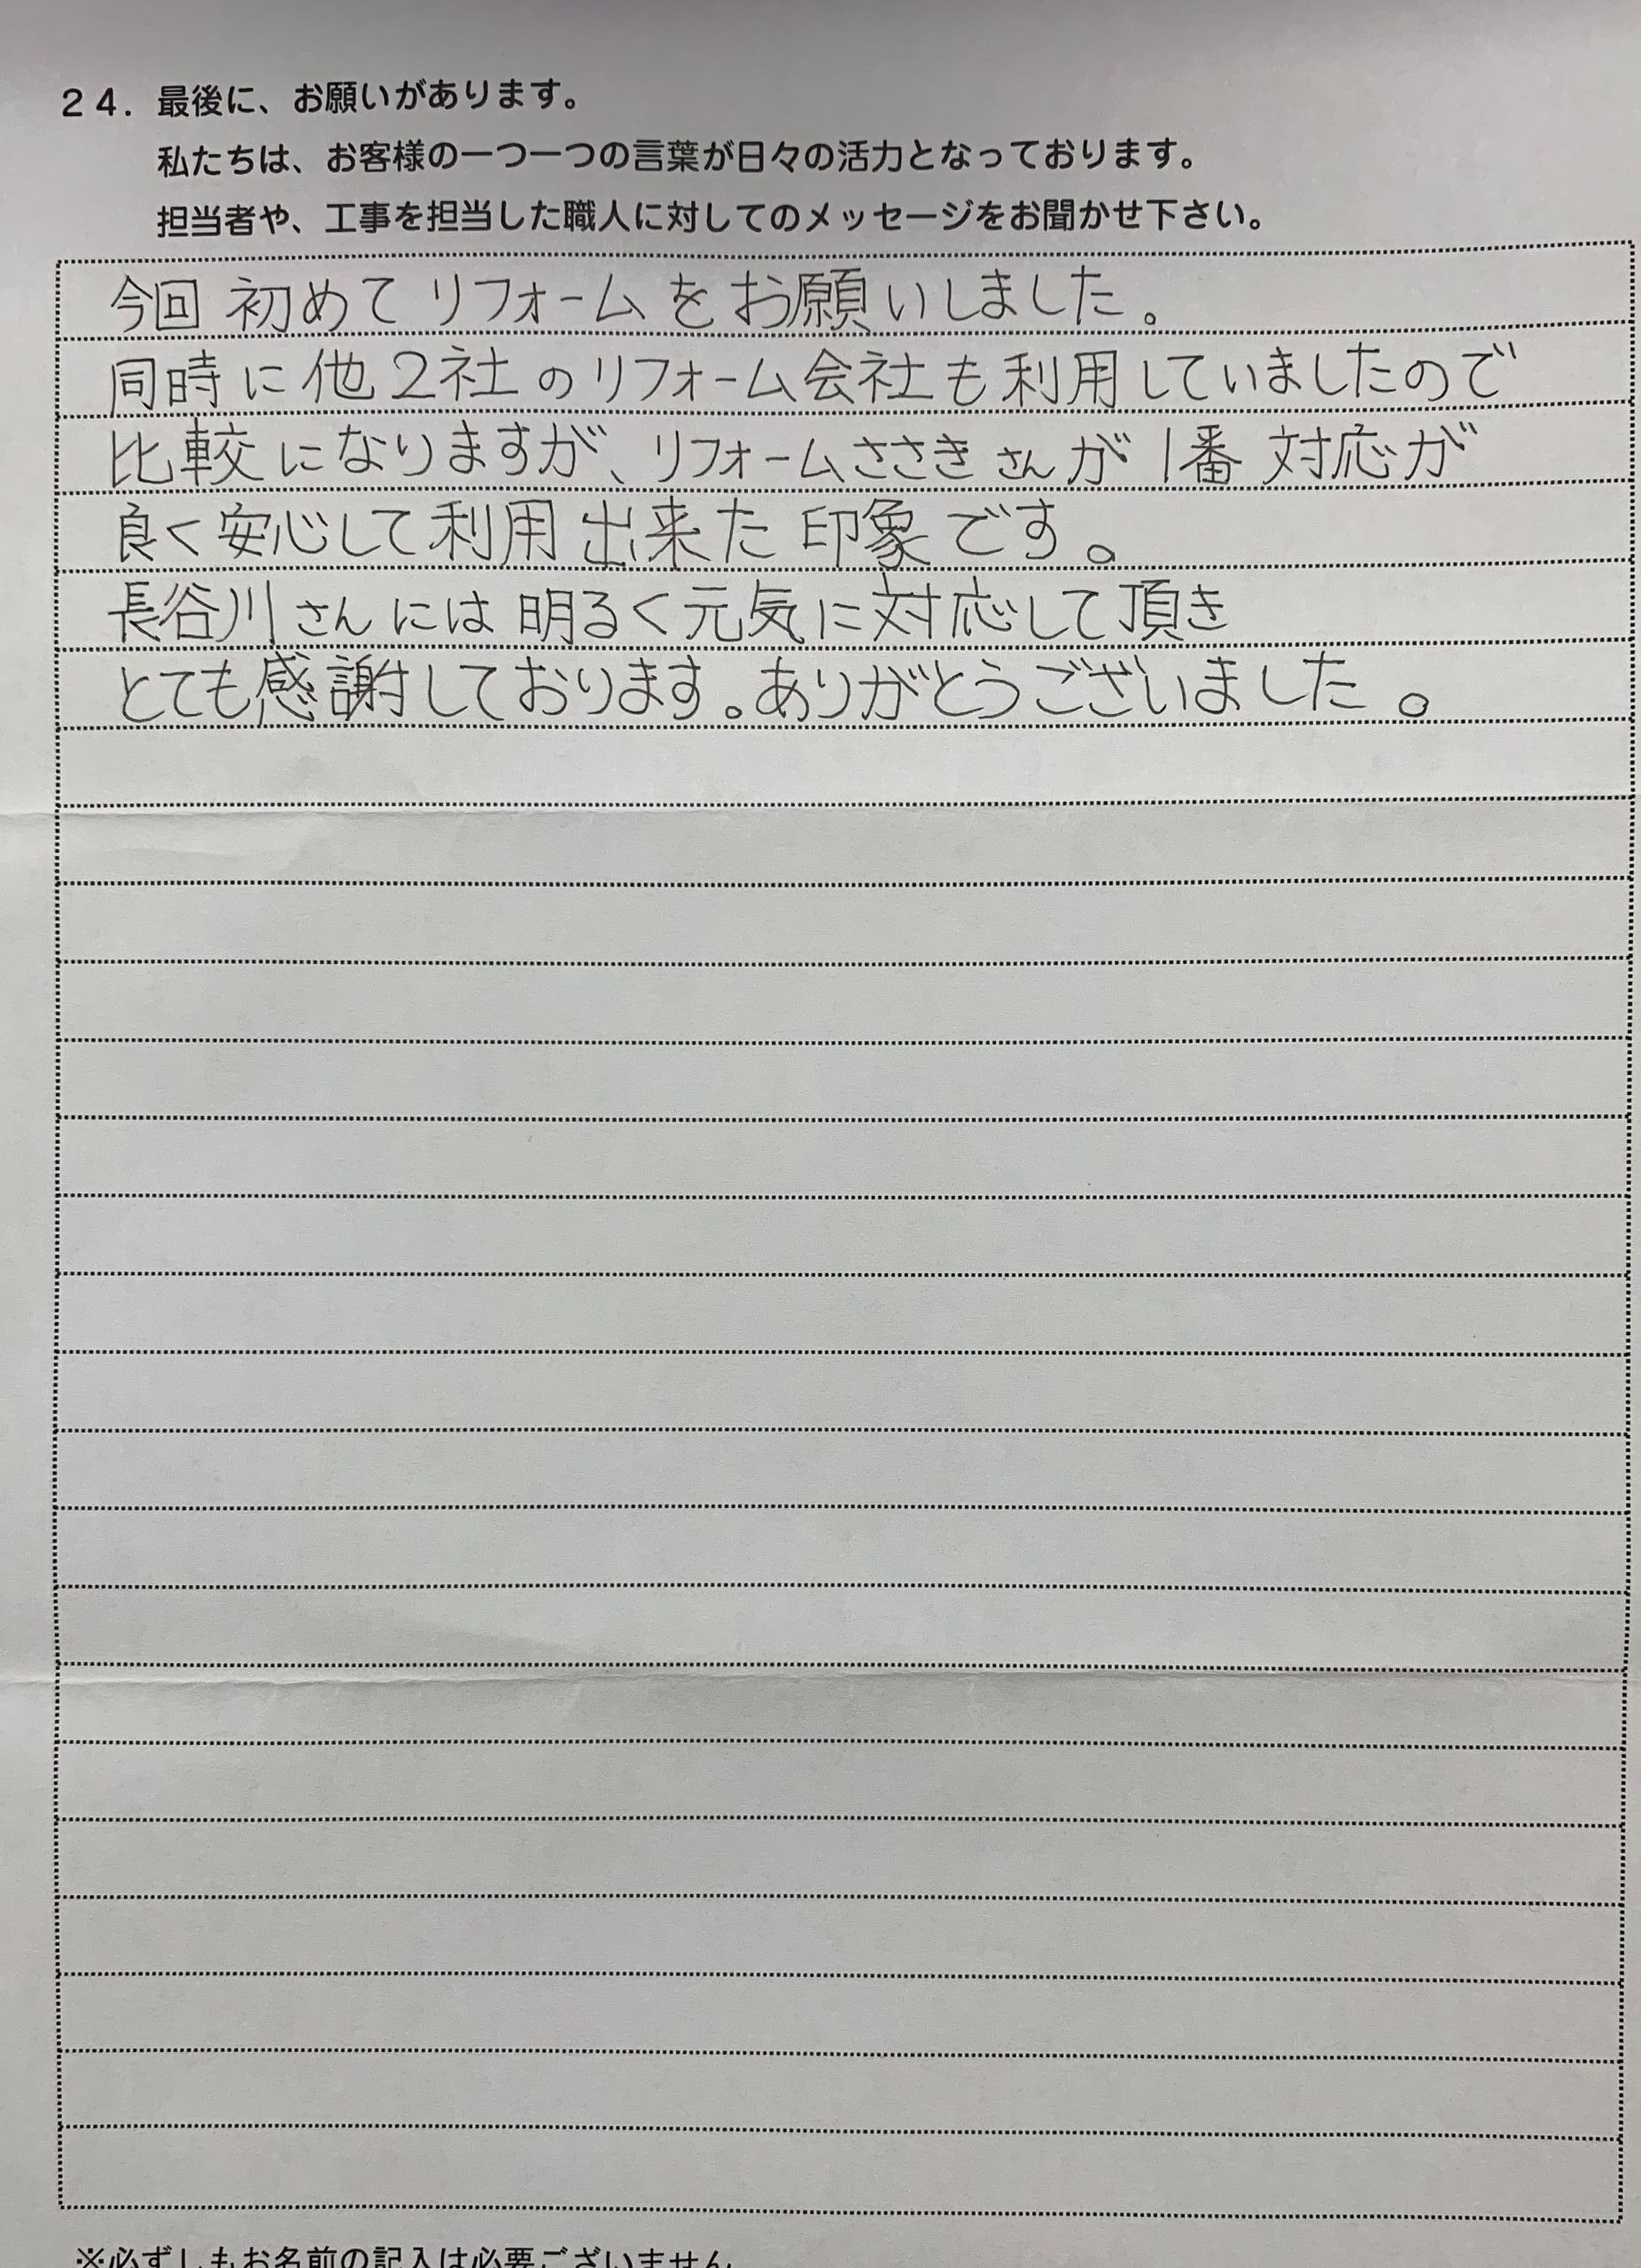 ２４．最後に、お願いがあります。
私たちは、お客様の一つ一つの言葉が日々の活力となっております。
担当者や、工事を担当した職人に対してのメッセージをお聞かせ下さい。
今回 初めて リフォーム を お願いしました。
同時に 他 2社 の リフォーム会社も利用していましたので
比較になりますが、リフォームささき さんが 1番 対応が
良く安心して利用出来た 印象です。
長谷川さんには 明るく元気に対応して頂き
とても感謝しております。ありがとうございました。
※必ずしもお名前の記入は必要ございません